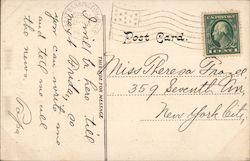 I will be here till
next Friday, so
you can write me
and tell me all
the news.
THIS SIDE FOR MESSAGE
Post Card.
Miss Theresa
359 Seventh Ave,
New York City.